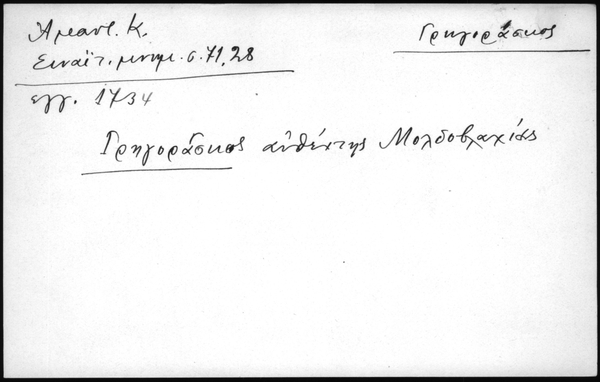 Ἀμαντ. Κ.
Σιναϊτ. μνημ. σ. 71, 28
Γρηγοράσκος
ἔγγ. 1734
Γρηγοράσκος αὐθέντης Μολδοβλαχίας